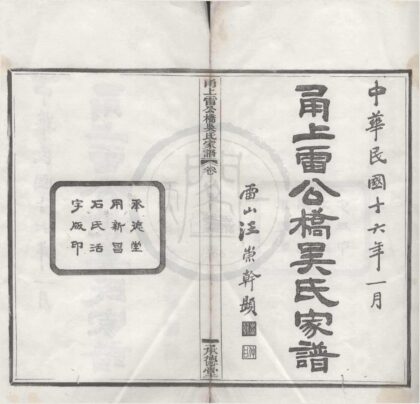 中華民國十六年一月
甬上雷公橋吳氏家譜
雷山汪崇幹題
甬上雷公橋吳氏家譜
卷
承德堂
承德堂
用新昌
石氏活
字版印